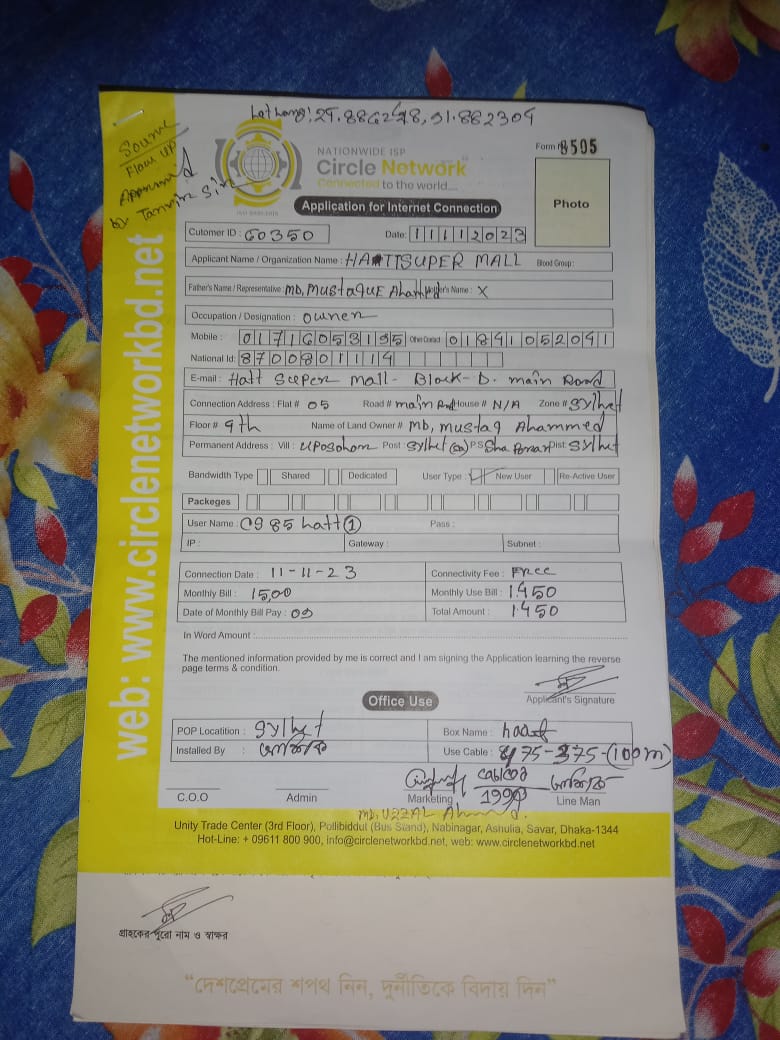 Source
Flow UP
Approved
by Tanvir Sir
NATIONWIDE ISP
Circle Network
Connected to the world....
Form # 8505
Photo
Application for Internet Connection
Cutomer ID : C0350 Date: 11112023
Applicant Name / Organization Name : HATTSUPER MALL Blood Group:
Father's Name / Representative : MD, MUSTAQUE Ahamed Mother's Name : X
Occupation / Designation : owner
Mobile : 01716053195 Other Contact : 01841052041
National Id: 8700801114
E-mail : Hatt Super mall- Block-D. main Road
Connection Address : Flat # 05 Road # main Rod House # N/A Zone # sylhet
Floor # 9th Name of Land Owner # MD, mustaq Ahammed
Permanent Address : Vill : UPoSohor Post : Sylhet PS Dist Sylhet
Bandwidth Type Shared Dedicated User Type : New User Re-Active User
Packeges
User Name : C985hatt① Pass :
IP : Gateway : Subnet :
Connection Date : 11-11-23 Connectivity Fee : Free
Monthly Bill : 1500 Monthly Use Bill : 1450
Date of Monthly Bill Pay : 09 Total Amount : 1450
In Word Amount :
The mentioned information provided by me is correct and I am signing the Application learning the reverse
page terms & condition.
Applicant's Signature
Office Use
POP Locatition : sylhet Box Name :
Installed By : Use Cable : 475-375-(100m)
C.O.O Admin Marketing 1990 Line Man
MD, UZZAL Ahmed.
Unity Trade Center (3rd Floor), Pollibiddut (Bus Stand), Nabinagar, Ashulia, Savar, Dhaka-1344
Hot-Line: + 09611 800 900, Info@circlenetworkbd.net, web: www.circlenetworkbd.net
web: www.circlenetworkbd.net
গ্রাহকের পুরো নাম ও স্বাক্ষর
“দেশপ্রেমের শপথ নিন, দুর্নীতিকে বিদায় দিন”